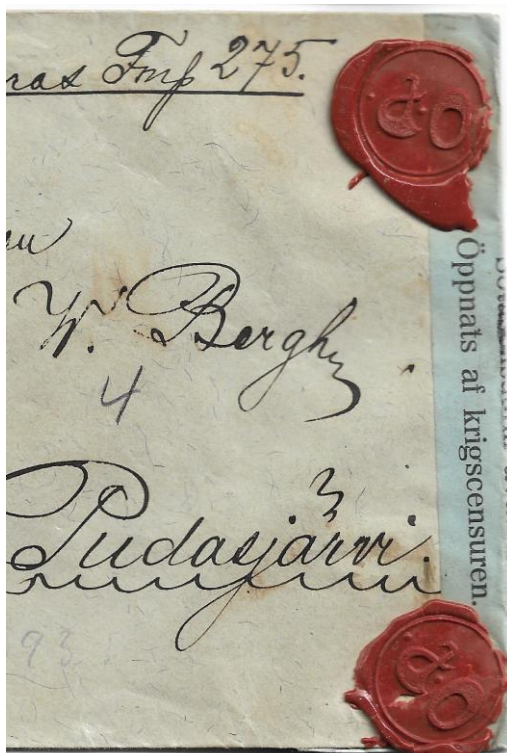 Fmk 275.
W. Bergh
4
Pudasjärvi.
93
Öppnats af krigscensuren.